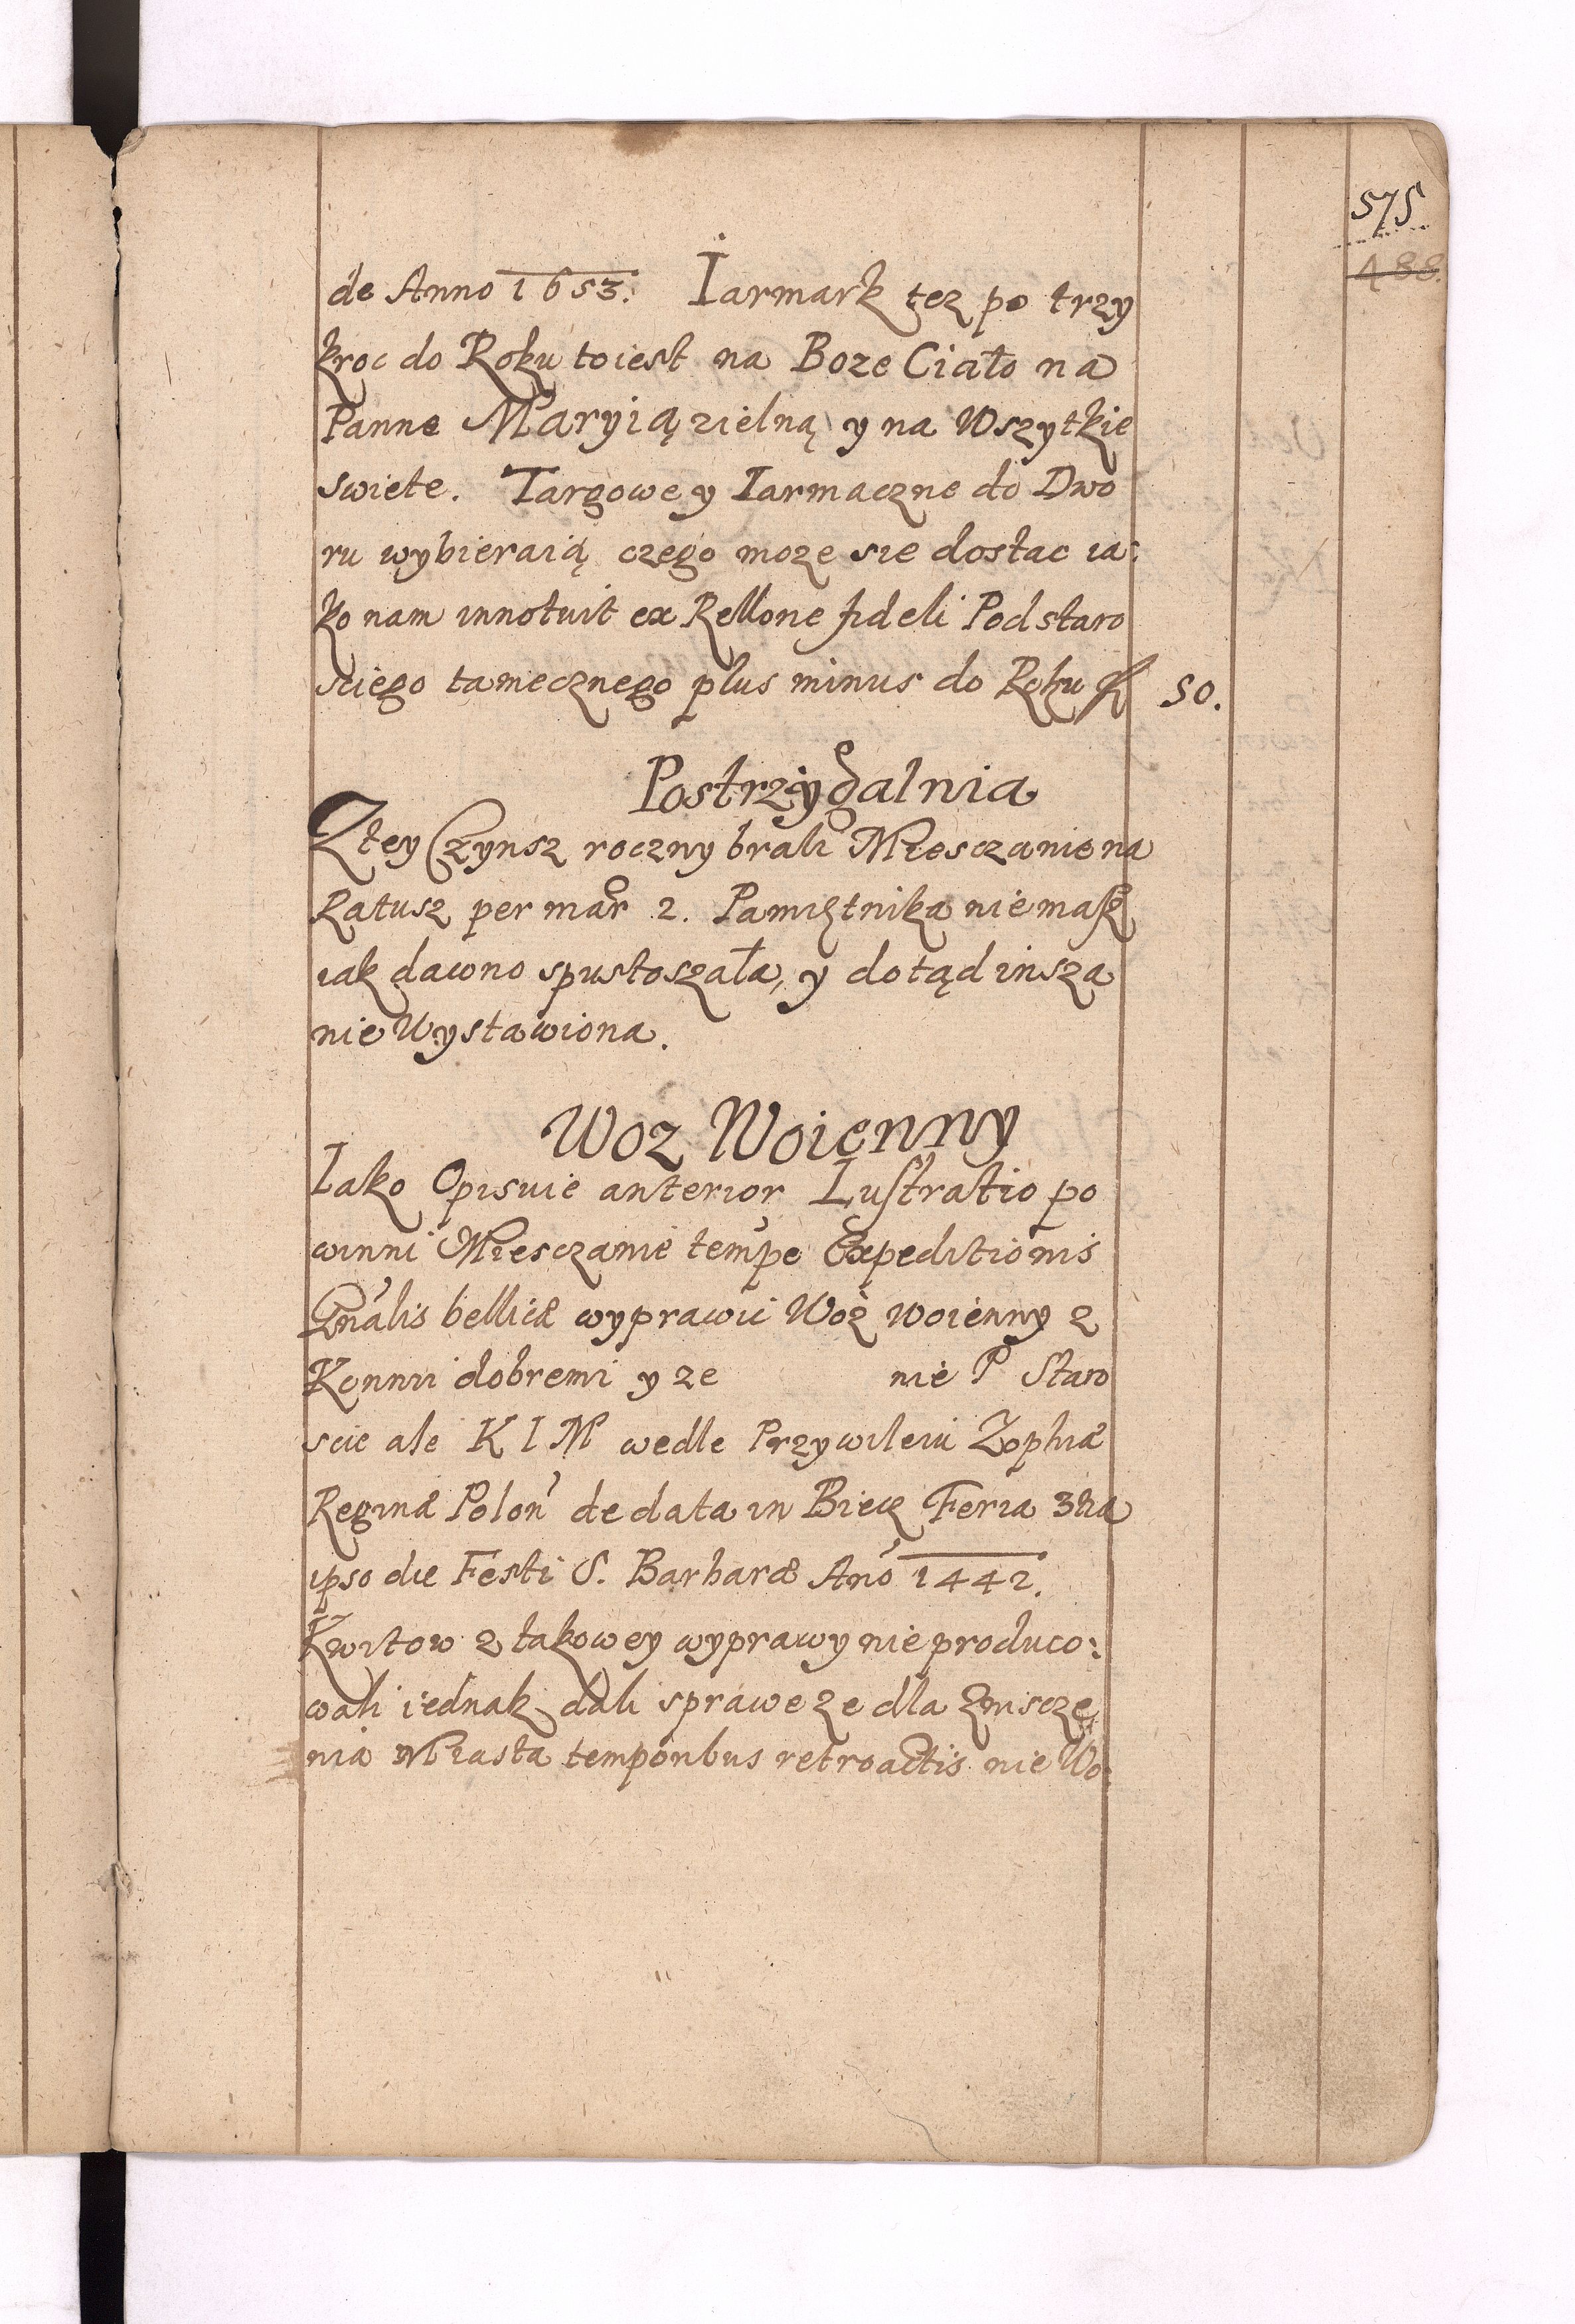 575
488.
de Anno 1653. Iarmark tez po trzy
kroc do Roku toiest na Boze Ciało na
Panne Maryią zielną y na Wszytkie
swiete. Targowe y Iarmaczne do Dwo
ru wybieraią czego moze sie dostac ia:
ko nam innotuit ex Rellone fideli Podstaro
sciego tamecznego plus minus do Roku ff 50.
Postrzygalnia
Z tey Czynsz roczny brali Miesczanie na
Ratusz per mar 2. Pamiętnika niemasz
iak dawno spustoszała, y dotąd insza
nie Wystawiona.
Woz Woienny
Iako Opisuie anterior Lustratio po
winni Miesczanie tempe Expeditionis
Gnalis bellicæ wyprawic Woz woienny z
Konmi dobremi y ze nie P Staro
scie ale K I M wedle Przywileiu Zophiæ
Reginæ Polon de data in Biecz Feria 3tia
ipso die Festi S. Barbaræ Ano 1442.
Kwitow z takowey wyprawy nie produco:
wali iednak dali sprawe ze dla Znisczę
nia Miasta temporibus retroactis nie Wo: